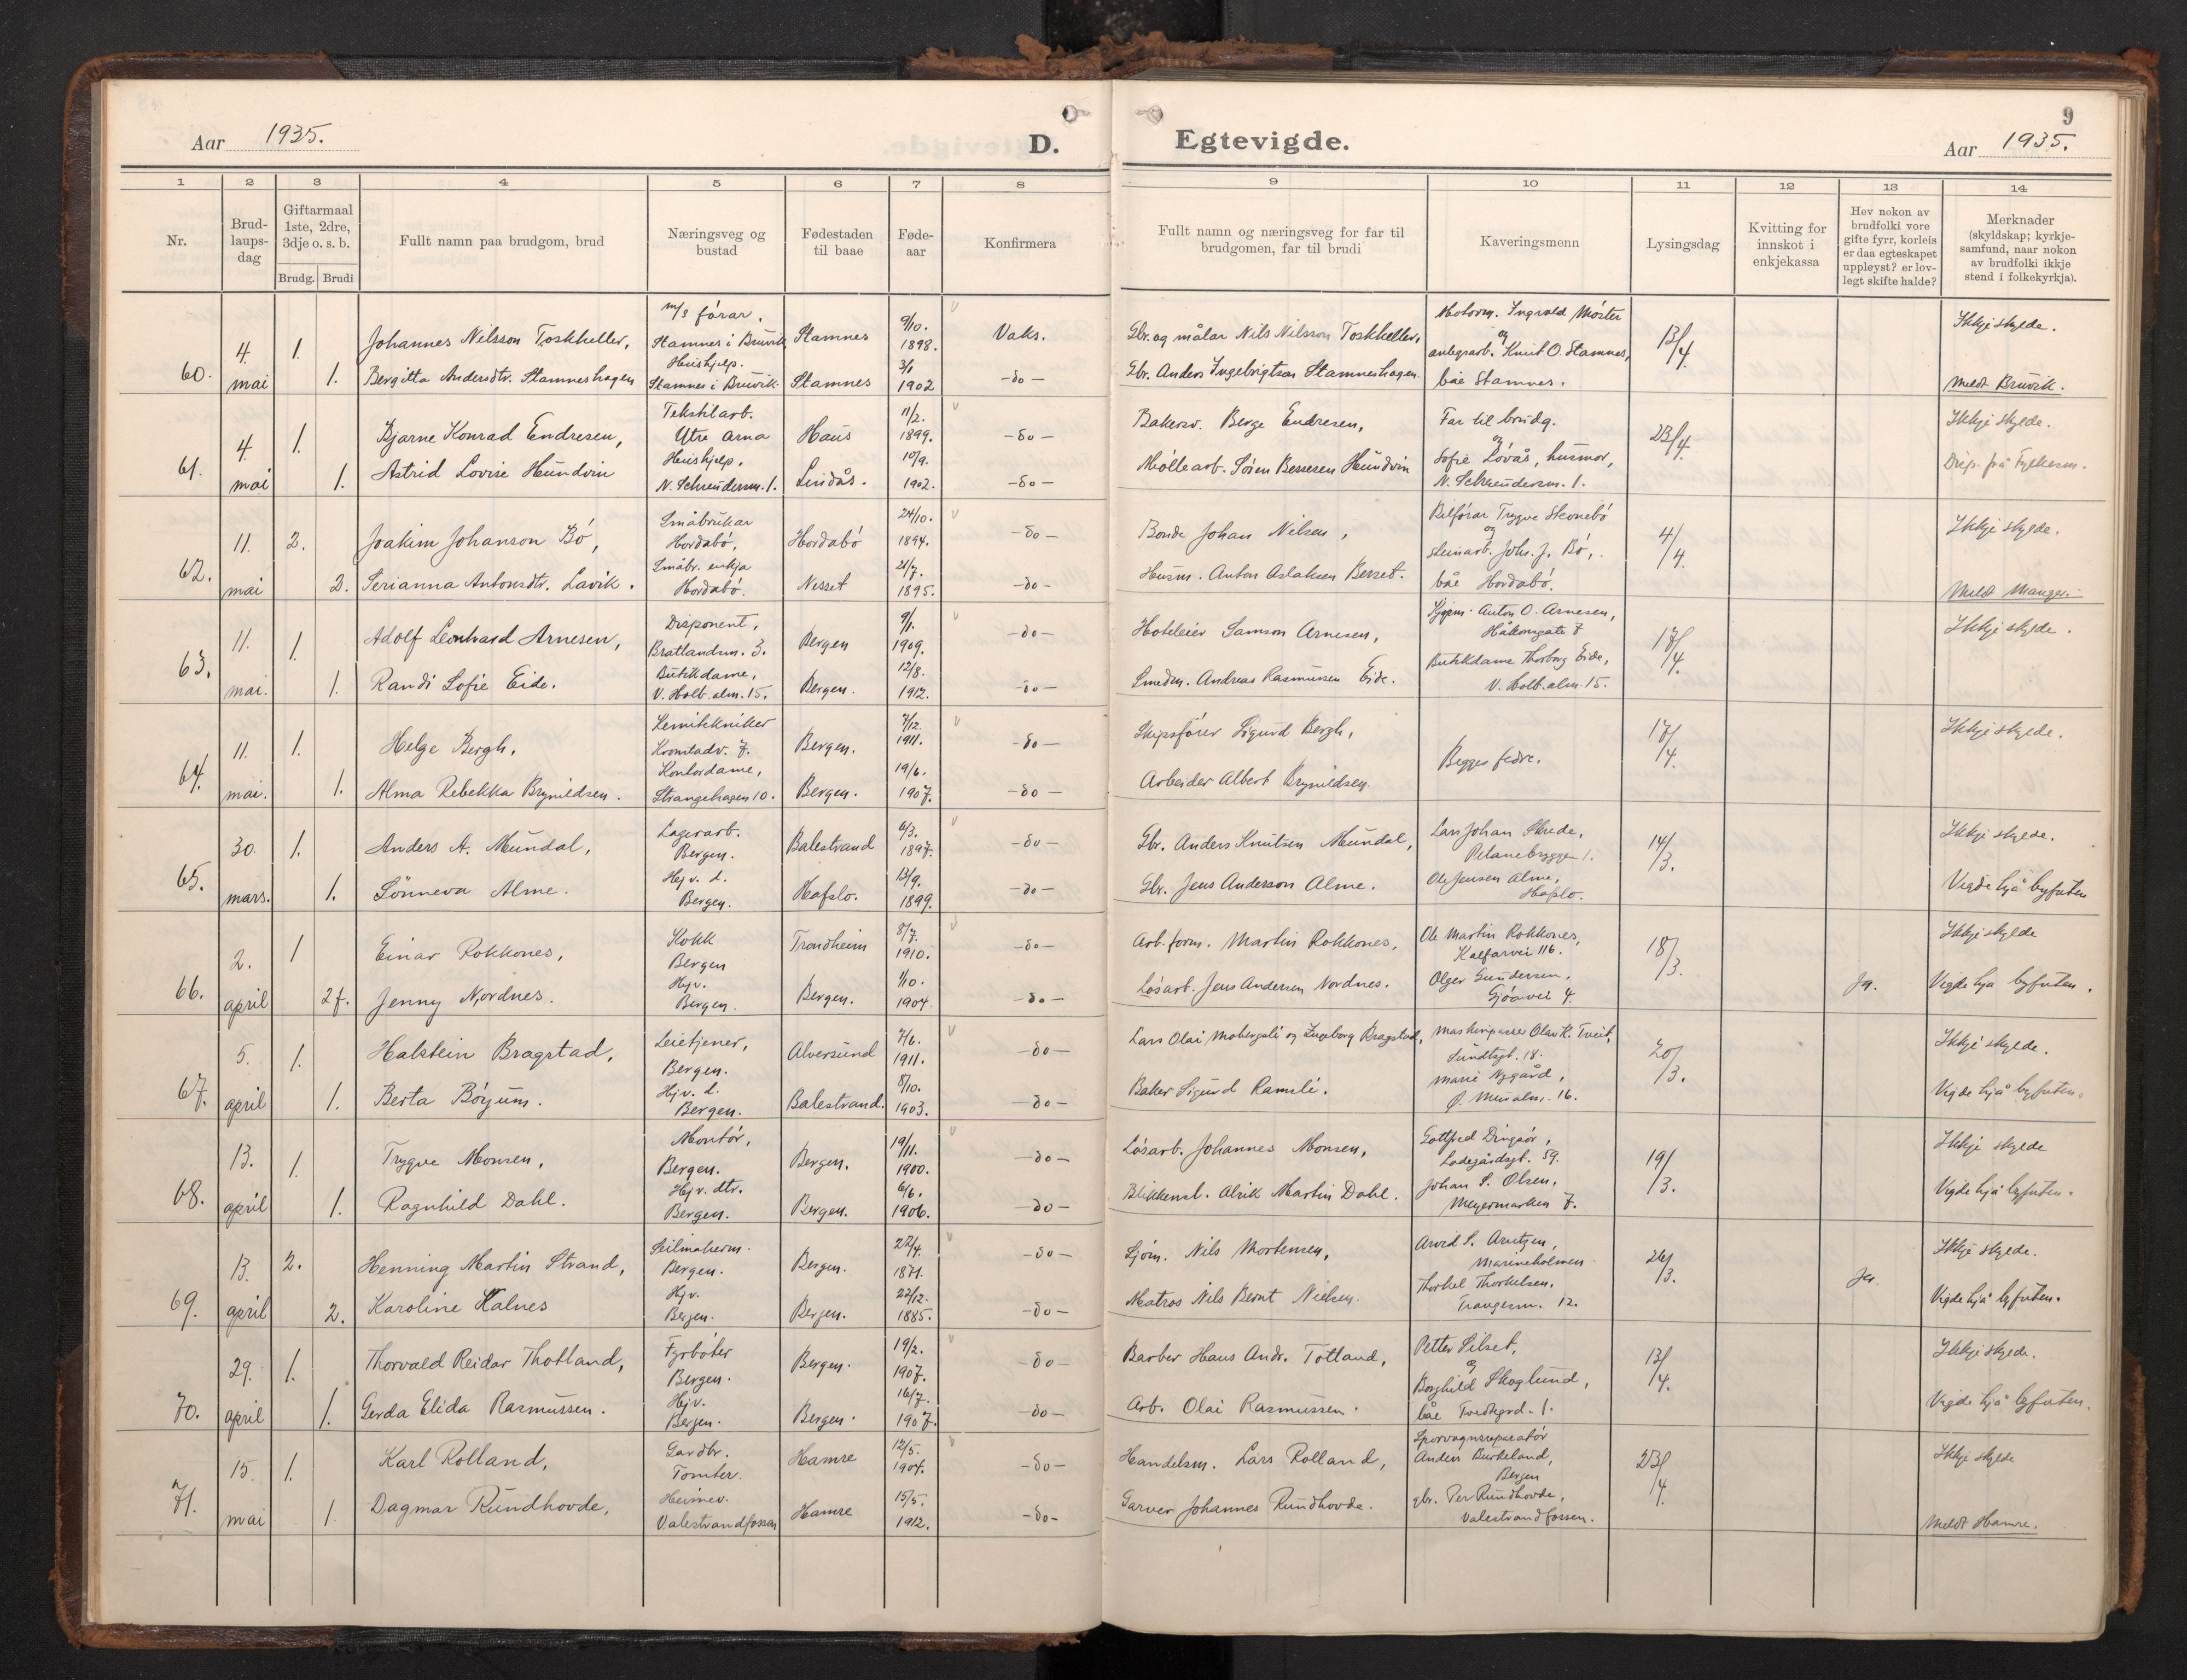 Aar 1935.
D.
Egtevigde.
9
Aar 1935.
1 2 3 4 5 6 7 8 9 10 11 12 13 14
Nr.
Brud-
laups-
dag
Giftarmaal
1ste, 2dre,
3dje o. s. b.
Brudg. Brudi
Fullt namn paa brudgom, brud
Næringsveg og
bustad
Fødestaden
til baae
Føde-
aar
Konfirmera
Fullt namn og næringsveg for far til
brudgomen, far til brudi
Kaveringsmenn
Lysingsdag
Kvitting for
innskot i
enkjekassa
Hev nokon av
brudfolki vore
gifte fyrr, korleis
er daa egteskapet
uppløyst? er lov-
legt skifte halde?
Merknader
(skyldskap; kyrkje-
samfund, naar nokon
av brudfolki ikkje
stend i folkekyrkja).
60.
4. mai
1.
Johannes Nilsson Toskheller,
m/s førar,
Stamnes i Bruvik
Stamnes
9/10. 1898.
Vaks.
Gbr. og målar Nils Nilsson Toskheller,
Motorm. Ingvald Moster
og
13/4.
Ikkje skylde.
1.
Bergitta Andersdtr. Stamneshagen
Hushjelp.
Stamnes i Bruvik
Stamnes
3/1 1902
-do-
Gbr. Anders Ingebrigtson Stamneshagen.
anlegsarb. Knut O. Stamnes,
båe Stamnes.
Meldt Bruvik.
61.
4. mai
1.
Bjarne Konrad Endresen,
Tekstilarb.
Ytre Arna
Haus
11/2. 1899.
-do-
Bakersv. Berge Endresen,
Far til brudg.
og
23/4.
Ikkje skylde.
1.
Astrid Lovise Hundvin
Hushjelp.
N. Schreudersm. 1.
Lindås.
10/9. 1902.
-do-
Møllearb. Søren Bessesen Hundvin
Sofie Løvås, husmor,
N. Schreudersm. 1.
Disp. frå Fylkesm.
62.
11. mai
2.
Joakim Johanson Bø,
Småbrukar
Hordabø,
Hordabø
24/10. 1894.
-do-
Bonde Johan Nilsen,
Bilførar Trygve Skonebø
og
4/4.
Ikkje skylde.
2.
Serianna Antonsdtr. Lavik.
Småbr. enkja
Hordabø.
Nesset
21/7. 1895.
-do-
Husm. Anton Aslaksen Berset.
steinarb. Johs. J. Bø,
båe Hordabø.
Meldt Manger.
63.
11. mai.
1.
Adolf Leonhard Arnesen,
Disponent,
Bratlandsm. 3.
Bergen
9/1. 1909.
-do-
Hoteleier Samson Arnesen,
Kjøpm. Anton O. Arnesen,
Håkonsgate 7
17/4.
Ikkje skylde.
1.
Randi Sofie Eide.
Butikdame,
V. Holb. alm. 15.
Bergen.
12/8. 1912.
-do-
Smedm. Andreas Rasmussen Eide.
Butikdame Thorborg Eide,
V. Holb. alm. 15.
64.
11. mai.
1.
Helge Bergh,
Kemitekniker
Kronstadv. 7.
Bergen.
7/12. 1911.
-do-
Skipsfører Sigurd Bergh,
Begges fedre.
17/4.
Ikkje skylde.
1.
Alma Rebekka Brynildsen.
Kontordame,
Strangehagen 10.
Bergen.
19/6. 1907.
-do-
Arbeider Albert Brynildsen.
65.
30. mars.
1.
Anders A. Mundal,
Lagerarb.
Bergen.
Balestrand
6/3. 1897.
-do-
Gbr. Anders Knutsen Mundal,
Lars Johan Skrede,
Pitanebryggen 1.
14/3.
Ikkje skylde.
1.
Sønneva Alme.
Hej v. d.
Bergen.
Hafslo.
13/9. 1899.
-do-
Gbr. Jens Anderson Alme.
Ole Jensen Alme,
Hafslo.
Vigde hjå byfuten
66.
2. april
1
Einar Rokkones,
Kokk
Bergen
Trondheim
8/7. 1910.
-do-
Arb. form. Martin Rokkones,
Ole Martin Rokkones,
Kalfarvei 116.
18/3.
Ikkje skylde
2 f.
Jenny Nordnes.
Hjv.
Bergen.
Bergen.
1/10. 1904.
-do-
Løsarb. Jens Andersen Nordnes.
Olger Gundersen,
Gjøavei 4.
Ja.
Vigde hjå byfuten.
67.
5. april
1.
Halstein Bragstad,
Leietjener,
Bergen.
Alversund
7/6. 1911.
-do-
Lars Olai Mobergsli og Ingeborg Bragstad,
Maskinpasser Olav K. Tveit,
Sundtsgt. 18.
20/3.
Ikkje skylde.
1.
Berta Børjum.
Hjv. d.
Bergen.
Balestrand.
8/10. 1903.
-do-
Baker Sigurd Ramsli.
Marie Nygård,
Ø. Mur alm. 16.
Vigde hjå byfuten.
68.
13. april
1.
Trygve Monsen,
Montør,
Bergen.
Bergen.
19/11. 1900.
-do-
Løsarb. Johannes Monsen,
Gottfred Dingsør,
Ladegårdsgt. 59.
19/3.
Ikkje skylde
1.
Ragnhild Dahl.
Hjv. dtr.
Bergen.
Bergen.
6/6. 1906.
-do-
Blikkensl. Alrik Martin Dahl.
Johan S. Olsen,
Meyermarken 7.
Vigde hjå byfuten.
69.
13. april
2.
Henning Martin Strand,
Seilmakerm.
Bergen.
Bergen.
22/4. 1871.
-do-
Sjøm. Nils Mortensen,
Arvid S. Arntzen,
Marineholmen
26/3.
Ikkje skylde.
2.
Karoline Kalnes
Hjv.
Bergen.
Bergen.
22/12. 1885.
-do-
Matros Nils Bernt Nielsen.
Thorkel Thorkelsen,
Trangesm. 12.
Ja.
Vigde hjå byfuten.
70.
29. april
1.
Thorvald Reidar Thotland,
Fyrbøter
Bergen.
Bergen.
19/2. 1907.
-do-
Barber Hans Andr. Totland,
Petter Silset,
og
13/4.
Ikkje skylde.
1.
Gerda Elida Rasmussen.
Hjv.
Bergen.
Bergen.
16/7. 1907.
-do-
Arb. Olai Rasmussen.
Borghild Skoglund,
båe Tvedtgrd. 1.
Vigde hjå byfuten.
71.
15. mai
1.
Karl Rolland,
Gardbr.
Tomter.
Hamre
12/5. 1904.
-do-
Handelsm. Lars Rolland,
Sporvognsreparatør
Anders Burkeland,
Bergen
23/4.
Ikkje skylde
1.
Dagmar Rundhovde,
Heimev.
Valestrandfossen
Hamre
15/5. 1912.
-do-
Garver Johannes Rundhovde.
gbr. Per Rundhovde,
Valestrandfossen.
Meldt Hamre.